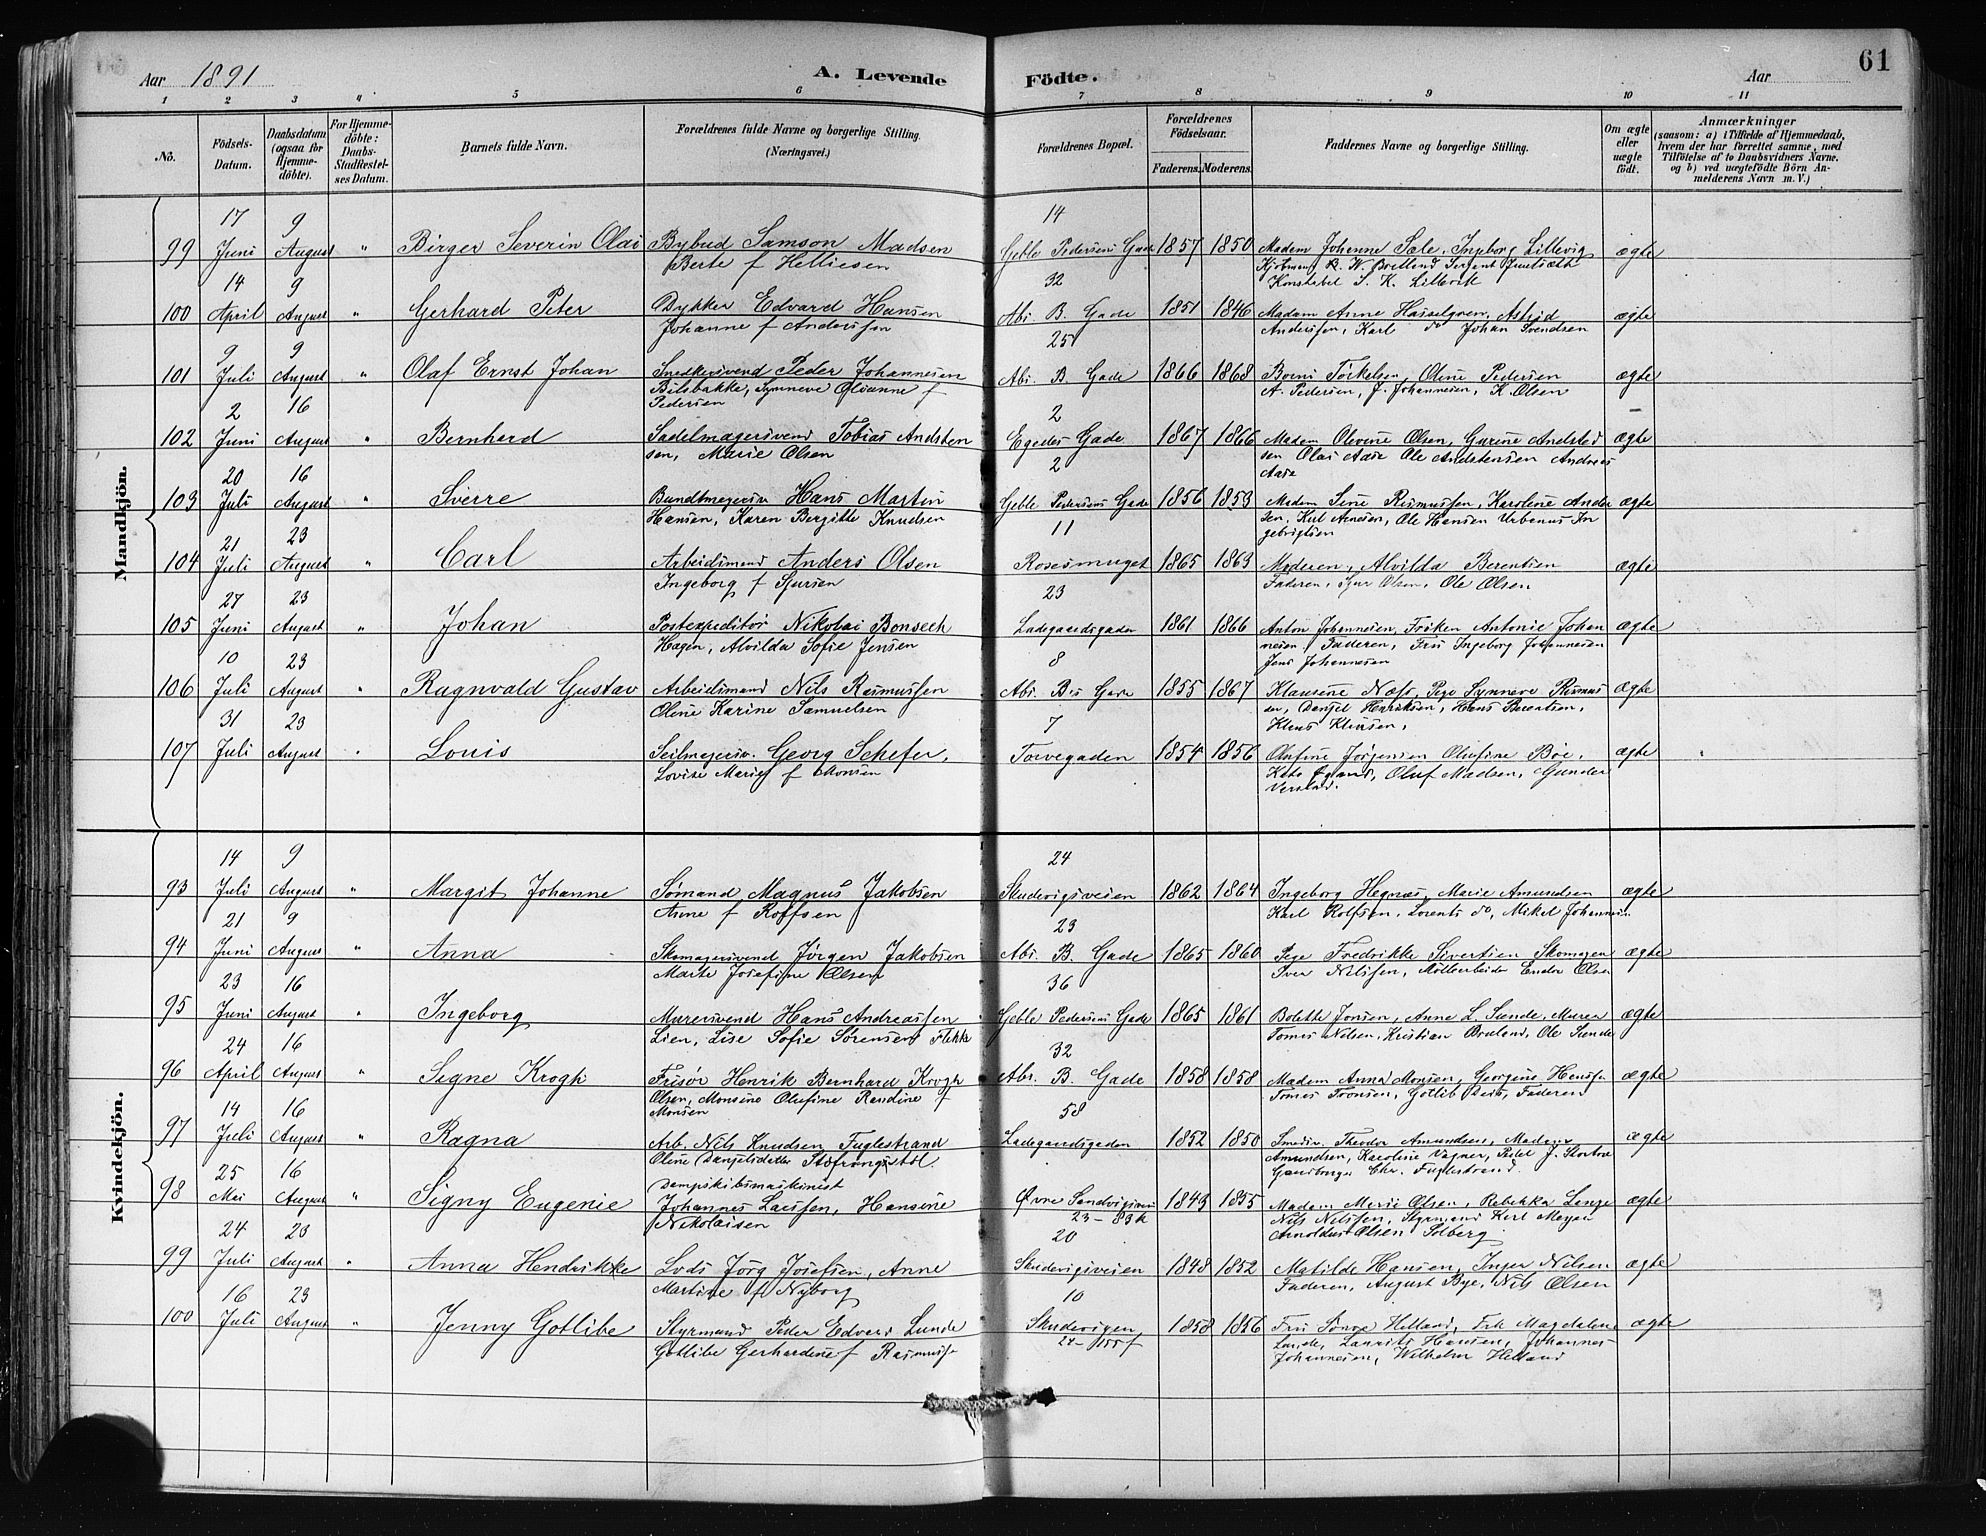 Aar 1891
A. Levende
Födte.
Aar
61
1 2 3 4 5 6 7 8 9 10 11
No.
Födsels-Datum.
Daabsdatum (ogsaa for Hjemmedöbte).
For Hjemmedöbte: Daabs-Stadfæstelses Datum.
Barnets fulde Navn.
Forældrenes fulde Navne og borgerlige Stilling.
(Næringsvei.)
Forældrenes Bopæl.
Forældrenes Födselsaar.
Faderens. Moderens.
Faddernes Navne og borgerlige Stilling.
Om ægte eller uægte födt.
Anmærkninger
(saasom: a) i Tilfælde af Hjemmedaab,
hvem der har forrettet samme, med
Tilföielse af to Daabsvidners Navne.
og b) ved uægtefödte Börn An-
melderens Navn m. V.)
Mandkjön.
17 9 14
99 Juni August " Birger Severin Olai Bybud Samson Madsen Geble Pedersens Gade 1857 1850 Madam Johanne Sale, Ingborg Lillevig ægte
Berte f Helliesen
Konstabel S. K. Lillevik
14 9 32
100 April August " Gerhard Peter Dykker Edvard Hansen Abs. B. Gade 1851 1846 Madam Anne Hasselgren, Astrid ægte
Johanne f Anderssen Anderssen, Karl do Johan Svendsen
9 9 25
101 Juli August " Olaf Ernst Johan Snedkersvend Peder Johannesen Abs. B. Gade 1866 1868 Berni Torkelsen, Oline Pedersen ægte
Bilsbakke, Synneve Olianne f A. Pedersen, J. Johannesen, K. Olsen
Pedersen
2 16 2
102 Juni August " Bernhard Sadelmagersvend Tobias Andsten Egedes Gade 1867 1866 Madam Olevine Olsen, Gurine Andsted ægte
sen, Marie Olsen sen Olai Aase Ole Andstensen Andreas
Aase
20 16 2
103 Juli August " Sverre Bundtmagersv Hans Martin Geble Pedersens Gade 1856 1853 Madam Sine Rasmussen, Karoline Ander ægte
Hansen, Karen Bergitte Knudsen sen, Karl Arnesen, Ole Hansen Urbanus In
gebrigtsen
21 23 11
104 Juli August " Carl Arbeidsmand Anders Olsen Rosesmuget 1865 1863 Moderen, Alvilda Berentsen ægte
Ingeborg f Sjursen Faderen, Sjur Olsen, Ole Olsen
27 23 23
105 Juni August " Johan Postexpeditör Nikolai Bonsech Ladegaardsgaden 1861 1866 Anton Johannesen, Fröken Antonie Johan ægte
Hagen, Alvilda Sofie Jensen nesen, Faderen, Fru Ingeborg Johannesen
Jens Johannesen
10 23 8
106 Juli August " Ragnvald Gustav Arbeidsmand Nils Rasmussen Abs. Bs Gade 1855 1867 Klausine Næss, Pige Synneve Rasmus ægte
Oline Karine Samuelsen sen, Danjel Henriksen, Hans Berentsen,
Klaus Klausen,
31 23 7
107 Juli August " Louis Seilmagersv. Georg Schefer, Torvegaden 1854 1856 Olufine Jørgensen Olufine Bøe, ægte
Lovise Marie f Monsen Oluf Madsen, Gunder
Kvindekjön.
14 9 24
93 Juli August " Margit Johanne Sømand Magnus Jakobsen Skudevigsveien 1862 1864 Ingeborg Hegnæs, Marie Amundsen ægte
Anne f Rolfsen Karl Rolfsen, Lorents do, Mikel Johannesen
21 9 23
94 Juni August " Anna Skomagersvend Jørgen Jakobsen Abs. B. Gade 1865 1860 Pige Fredrikke Sivertsen Skomager ægte
Marte Josefine Olsen Iver Nilssen, Möllerarbeider Endre Olsen
23 16 36
95 Juni August " Ingeborg Murersvend Hans Andreassen Geble Pedersens Gade 1865 1861 Bolette Jonsen, Anne L. Sunde, Murer ægte
Lien, Lise Sofie Sørensen Flekke Tomas Nelsen, Kristian Braland, Ole Sunde
24 16 32
96 April August " Signe Krogh Frisør Henrik Bernhard Krogh Abs. B. Gade 1858 1858 Madam Anna Monsen, Georgine Hanssen ægte
Olsen, Monsine Olufine Randine f Tomas Tronsen, Gotlib Faderen
Monsen
14 16 58
97 Juli August " Ragna Arb. Nils Knudsen Fuglestrand Ladegaardsgaden 1852 1850 Smedsv. Theodor Amundsen, Madam ægte
Oline Danjelsdatter Amundsen, Karoline Vagner, Peder J.
Chr. Fuglestrand.
25 16
98 Mai August " Signy Eugenie Dampskibsmaskinist Øvre Sandvigsvei 1843 1855 Madam Marie Olsen, Rebekka Lange ægte
Johannes Laussen, Hansine 23-83k Nils Nilssen, Styrmand Karl Meyer
Nikolaisen Arnoldus Olsen Solberg
24 23 20
99 Juli August " Anna Hendrikke Lods Jørg Josefsen, Anne Skudevigsveien 1848 1852 Matilde Hansen, Inger Nilsen ægte
Martine f Nyborg Faderen, August Bye, Nils Olsen
16 23 10
100 Juli August " Jenny Gotlibe Styrmand Peder Edvard Lunde Skudevigen 1858 1856 Fru Sønva Helland, Frk Magdalene ægte
Gotlibe Gerhardine f Rasmuss 24-155f Lunde, Laurits Hansen, Johannes
Johannesen, Wilhelm Helland